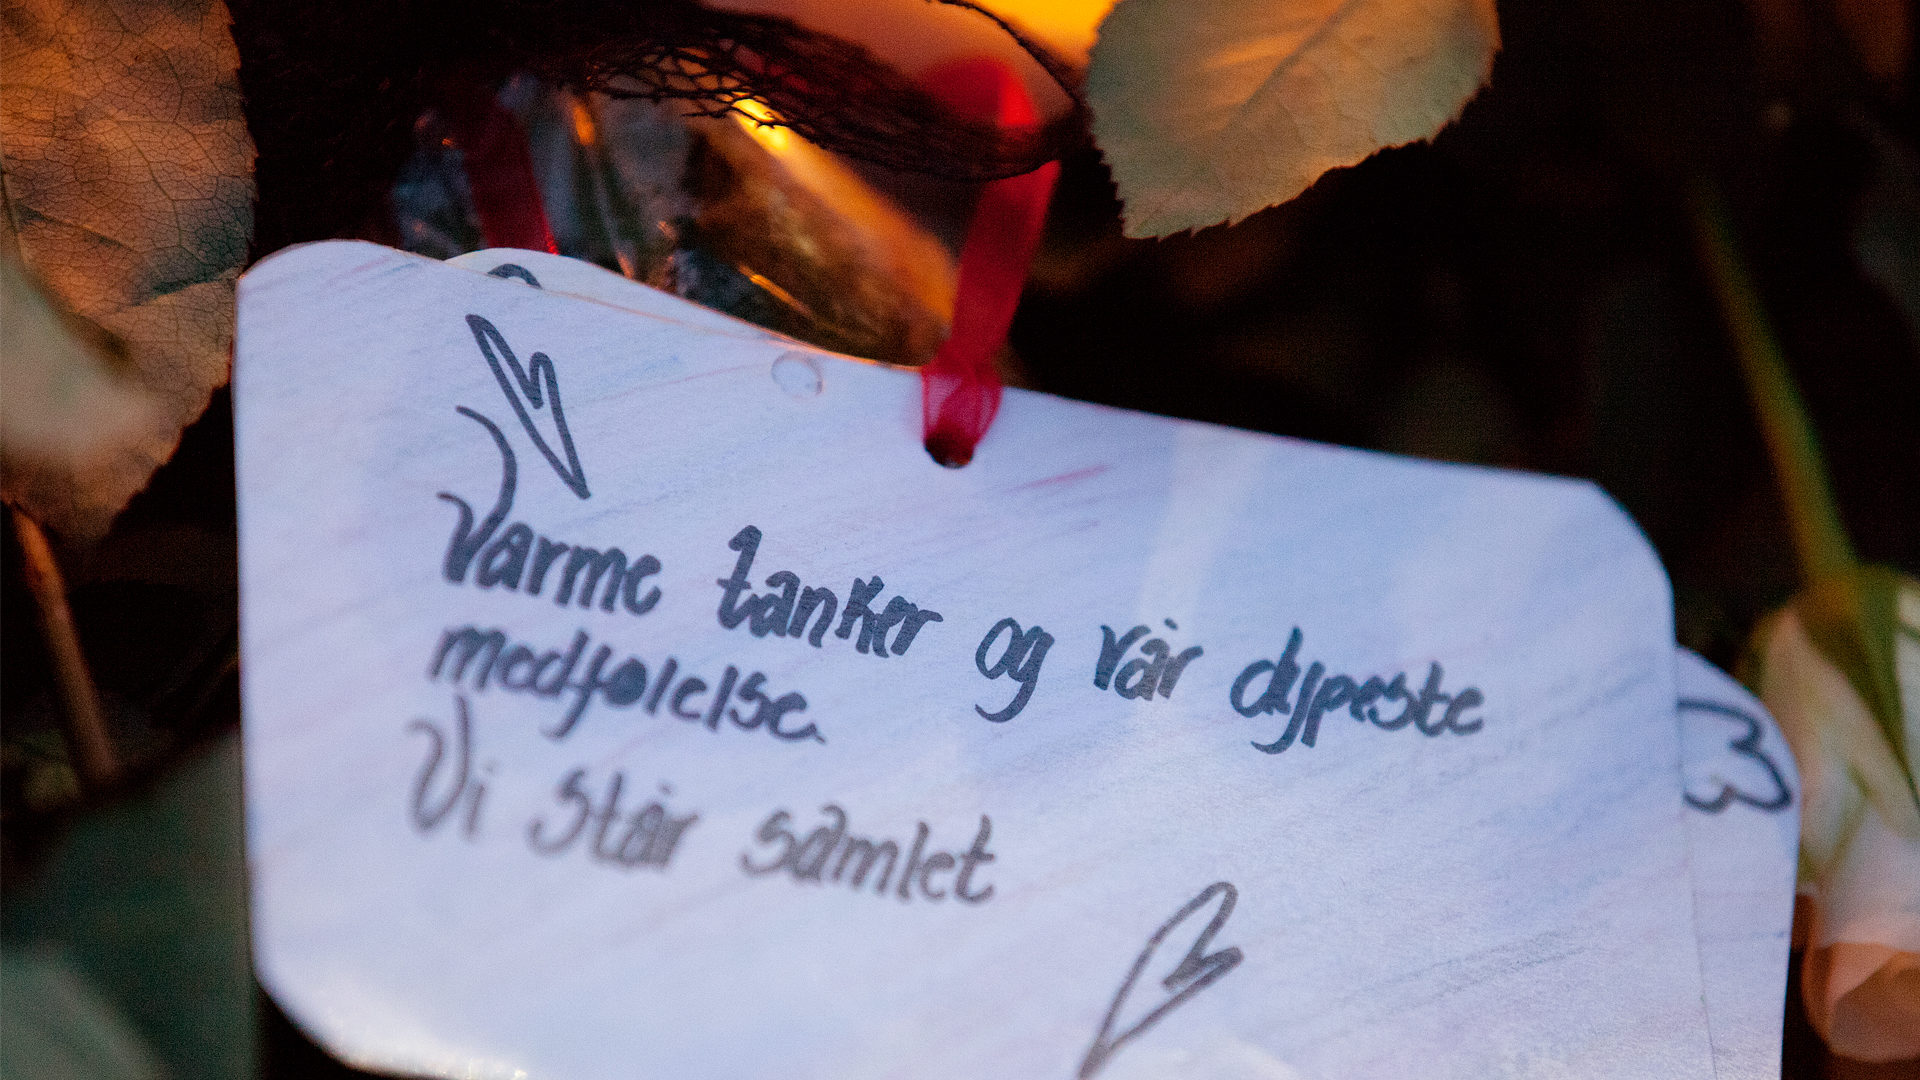 Varme tanker og vår dypeste
medfølelse.
Vi står samlet